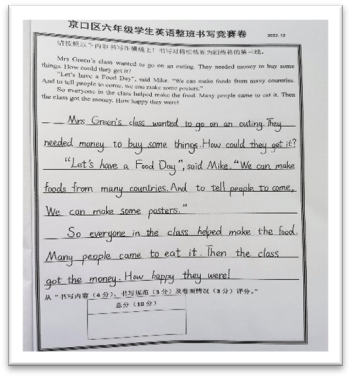 京口区六年级学生英语整班书写竞赛卷 2022.12
请按照以下内容书写在横线上！书写时
Mrs Green's class wanted to go on an outing. They needed money to buy some
things. How could they get it?
"Let's have a Food Day", said Mike. "We can make foods from many countries.
And to tell people to come, we can make some posters."
So everyone in the class helped make the food. Many people came to eat it. Then
the class got the money. How happy they were!
Mrs Green's class wanted to go on an outing. They
needed money to buy some things. How could they get it?
"Let's have a Food Day", said Mike. "We can make
foods from many countries. And to tell people to come,
We can make some posters."
So everyone in the class helped make the food.
Many people came to eat it. Then the class
got the money. How happy they were!
从“书写内容（4分）、书写规范（3分）及卷面情况（3分）评分。”
总分（10分）